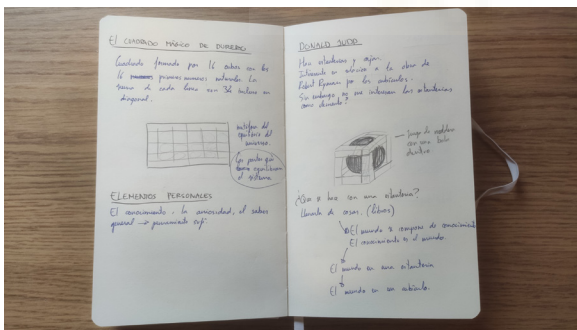 El CUADRADO MÁGICO DE DURERO
Cuadrado formado por 16 cubos con los
16 primeros numeros naturales. La
suma de cada línea son 34 incluso en
diagonal.
metáfora del
equilibrio del
universo.
Las partes que
equilibran
el sistema
ELEMENTOS PERSONALES
El conocimiento, la curiosidad, el saber
general → pensamiento
DONALD JUDD
Hace estanterías y cajas.
a la obra de
Robert Ryman por los cubículos.
Sin embargo me interesan las estanterías
como elemento?
Juego de
con una
¿Que se hace con una estantería?
Llenarla de cosas. (libros)
El mundo se compone de conocimiento
El conocimiento es el mundo.
El mundo en una estantería
El mundo en un cubículo.